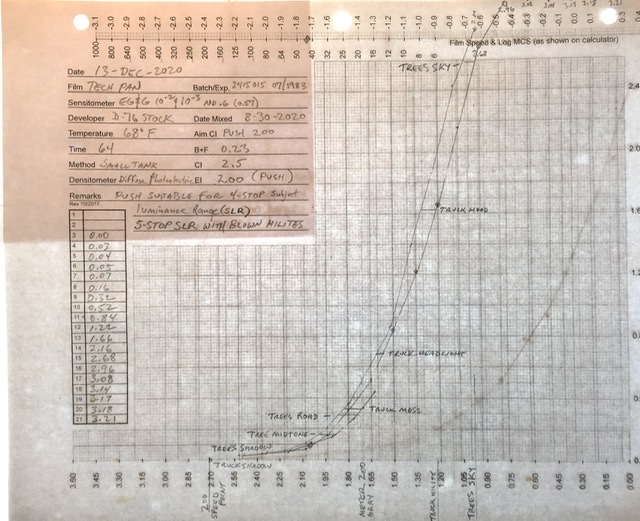 -3.1 -3.0 -2.9 -2.8 -2.7 -2.6 -2.5 -2.4 -2.3 -2.2 -2.1 -2.0 -1.9 -1.8 -1.7 -1.6 -1.5 -1.4 -1.3 -1.2 -1.1 -1.0 -0.9 -0.8 -0.7 -0.6 -0.5 -0.4 -0.3 -0.2 -0.1 0.0 0.1 0.2 0.3
2.96 3.08 3.14 3.17 3.18 3.21
1000 800 640 500 400 320 250 200 160 125 100 80 64 50 40 32 25 20 16 12 10 8 6
Film Speed & Log MCS (as shown on calculator)
2.68
TREES SKY
Date 13-DEC-2020
Film TECH PAN Batch/Exp. 2415015 07/1983
Sensitometer EG&G 10⁻² & 10⁻³ NO.6 (0.51)
Developer D-76 STOCK Date Mixed 8-30-2020
Temperature 68° F Aim CI PUSH 200
Time 64 B+F 0.23
Method SMALL TANK CI 2.5
Densitometer Diffuse Photoelectric EI 200 (PUSH)
Remarks PUSH SUITABLE FOR 4-STOP Subject
Rev 10/2017
luminance Range (SLR)
5-STOP SLR WITH BLOWN HILITES
1
2
3 0.00
4 0.03
5 0.04
6 0.05
7 0.07
8 0.16
9 0.32
10 0.52
11 0.84
12 1.22
13 1.66
14 2.16
15 2.68
16 2.96
17 3.08
18 3.14
19 3.17
20 3.18
21 3.21
2.4
2.0
1.6
1.2
0.8
TRUCK HOOD
TRUCK HEADLIGHT
TRUCK MOSS
TREES ROAD
TREE MIDTONE
TREES SHADOW
TRUCK SHADOW
3.60 3.45 3.30 3.15 3.00 2.85 2.70 2.55 2.40 2.25 2.10 1.95 1.80 1.65 1.50 1.35 1.20 1.05 0.90 0.75 0.60 0.45 0.30 0.15 0.00
200 SPEED POINT
METER 200 GRAY
TRUCK HILITE
TREES SKY